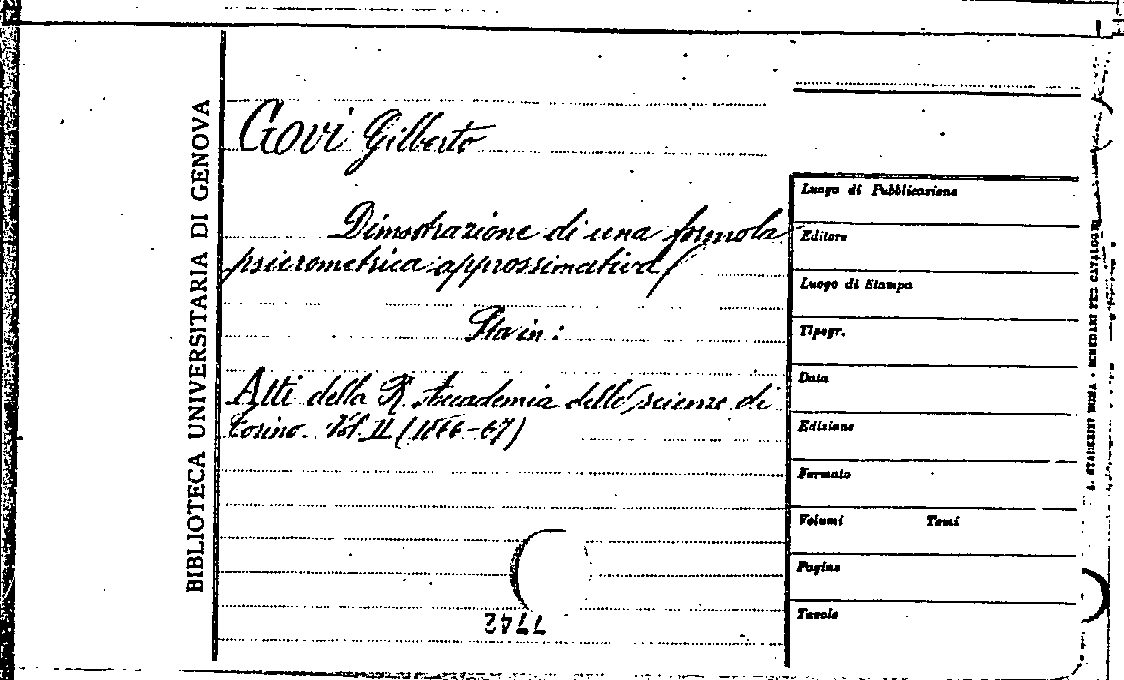 BIBLIOTECA UNIVERSITARIA DI GENOVA
Govi Gilberto
Dimostrazione di una formola
psicrometrica approssimativa
Sta in:
Atti della R. Accademia delle scienze di
Torino. Vol. II (1866-67)
7742
Luogo di Pubblicazione
Editore
Luogo di Stampa
Tipogr.
Data
Edizione
Formato
Volumi Tomi
Pagine
Tavole
STADERINI ROMA • SCHEDARI PER CATALOGHI